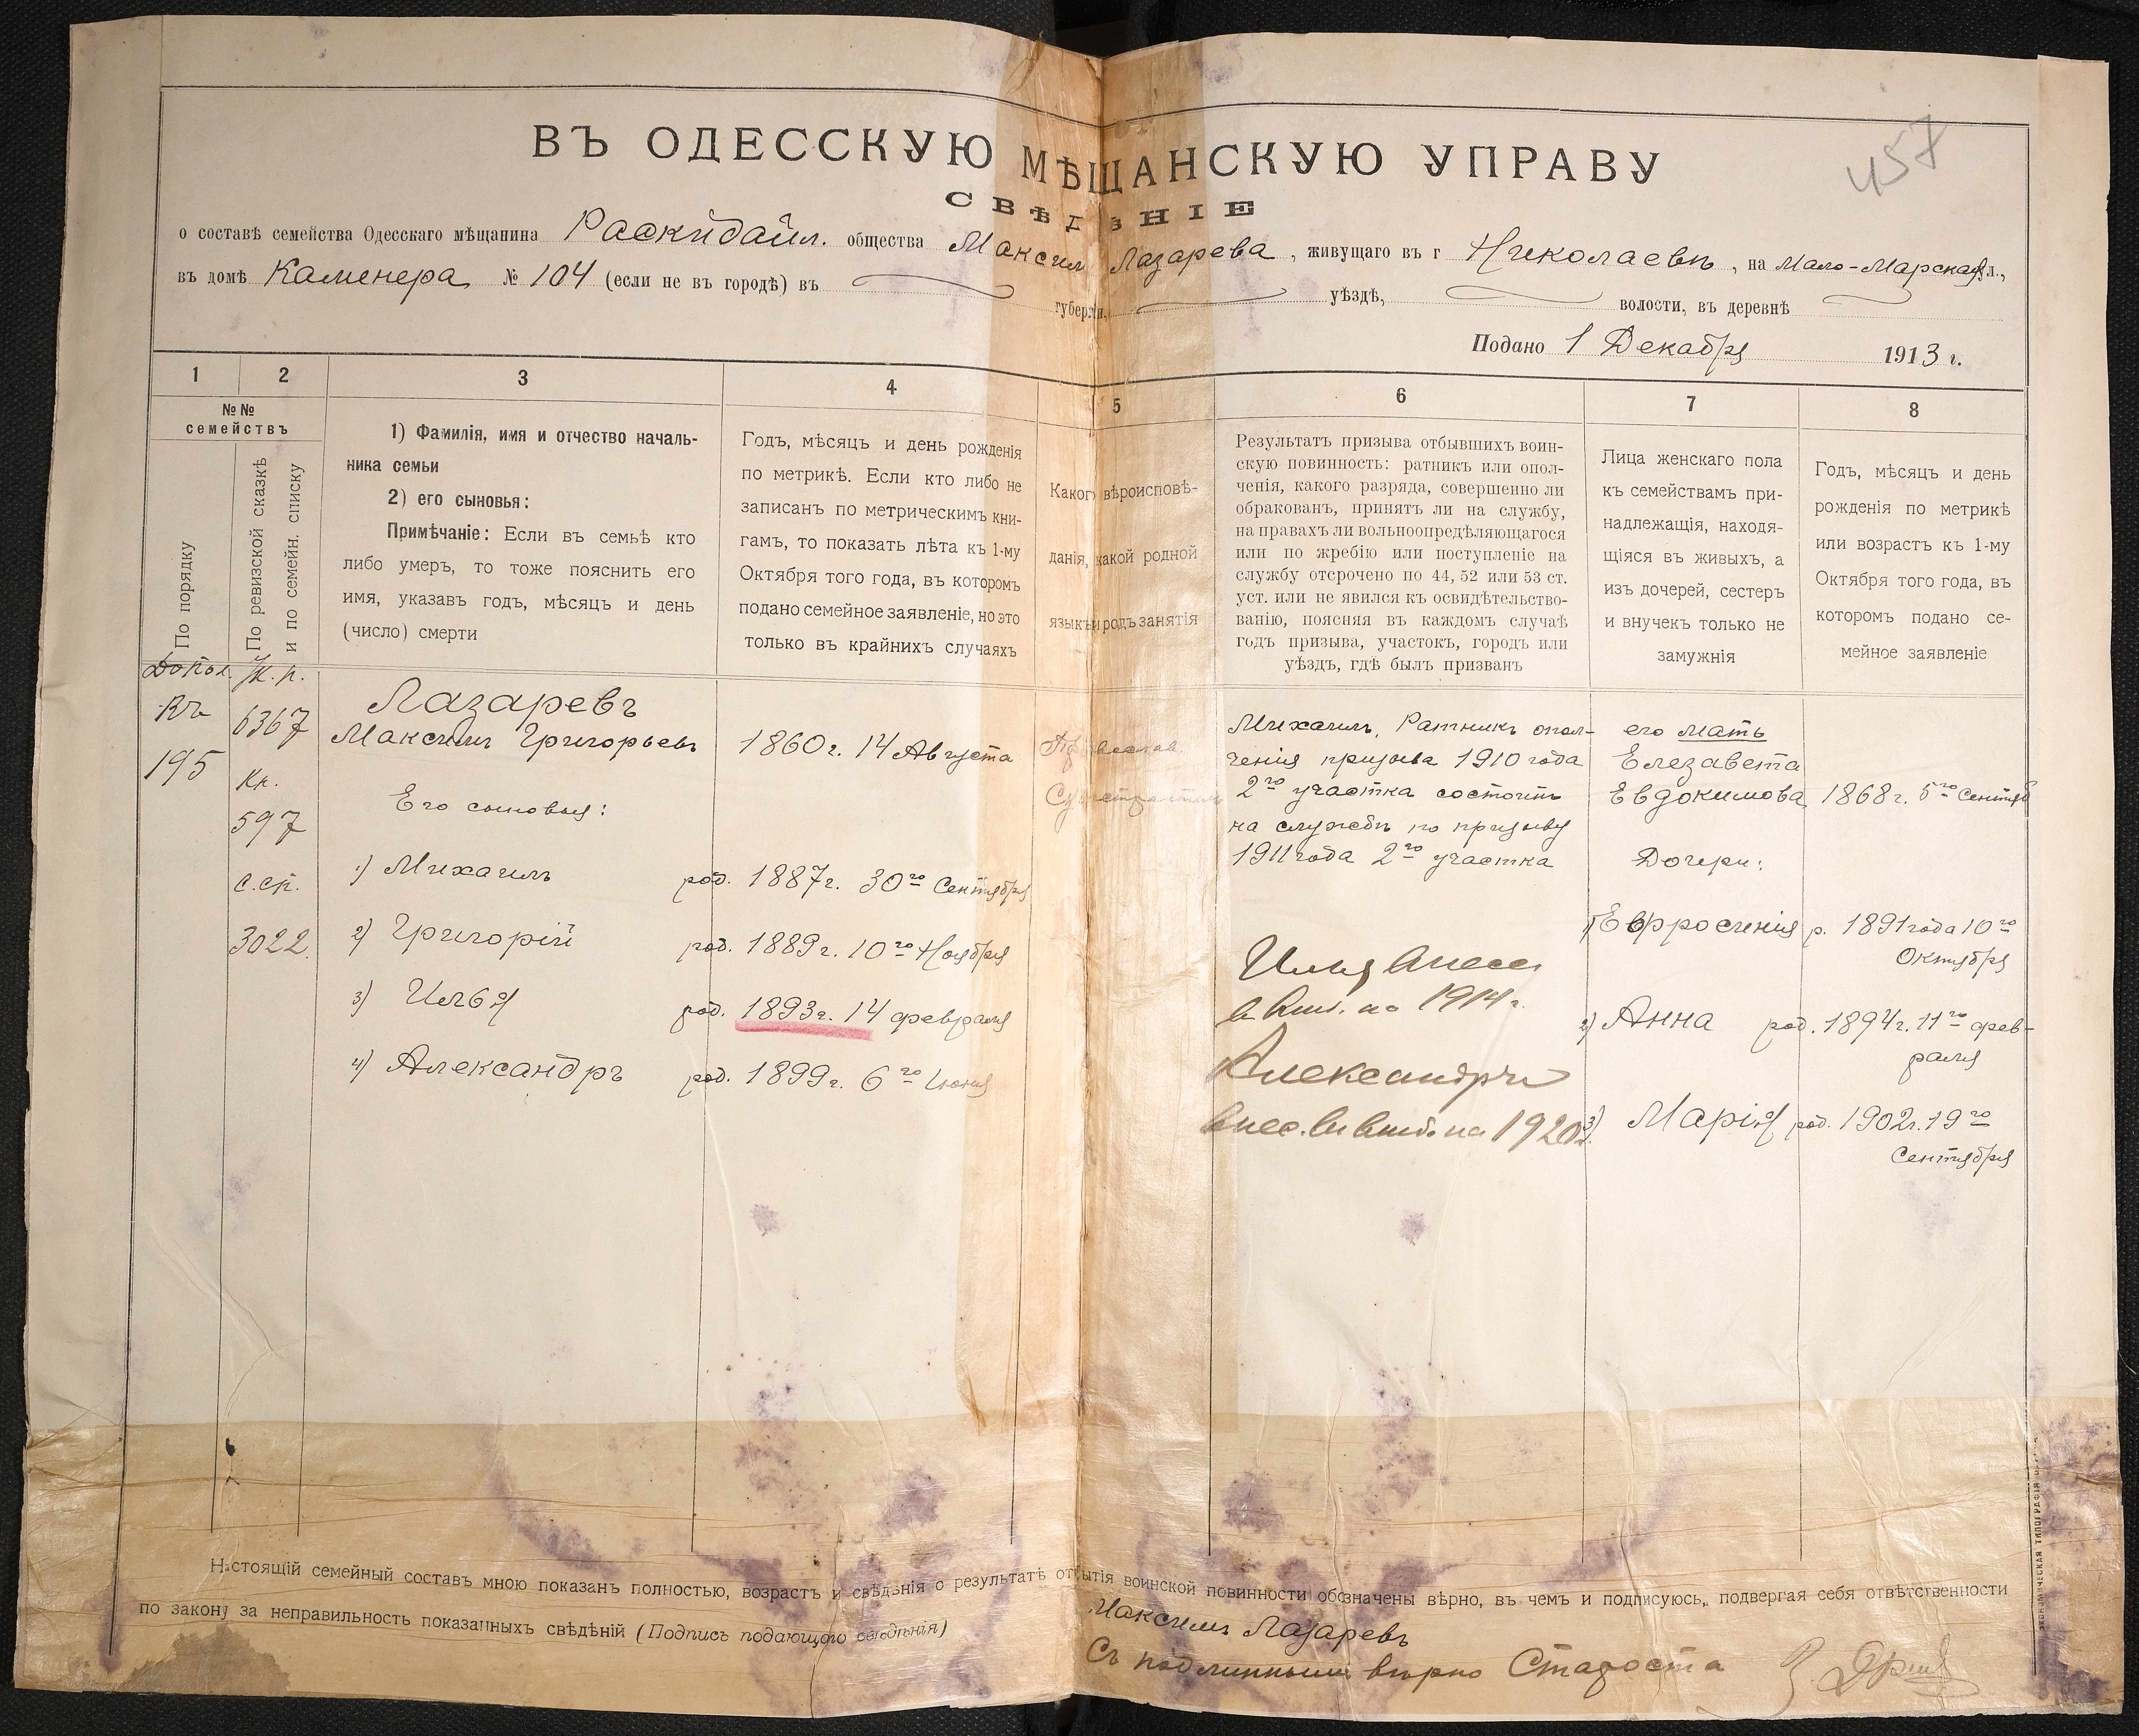 457
ВЪ ОДЕССКУЮ МѢЩАНСКУЮ УПРАВУ
СВѢДѢНІЕ
о составѣ семейства Одесскаго мѣщанина Раскидайл. общества Максим Лазарева, живущаго въ г Николаевѣ, на Мало-Марской ул.,
въ домѣ Каменера № 104 (если не въ городѣ) въ губерніи, уѣздѣ, волости, въ деревнѣ
Подано 1 Декабря 1913 г.
1 2 3 4 5 6 7 8
№№ семействъ
По порядку
По ревизской сказкѣ
и по семейн. списку
1) Фамилія, имя и отчество началь-
ника семьи
2) его сыновья:
Примѣчаніе: Если въ семьѣ кто
либо умеръ, то тоже пояснить его
имя, указавъ годъ, мѣсяцъ и день
(число) смерти
Годъ, мѣсяцъ и день рожденія
по метрикѣ. Если кто либо не
записанъ по метрическимъ кни-
гамъ, то показать лѣта къ 1-му
Октября того года, въ которомъ
подано семейное заявленіе, но это
только въ крайнихъ случаяхъ
Какого вѣроисповѣ-
данія, какой родной
языкъ и родъ занятія
Результатъ призыва отбывшихъ воин-
скую повинность: ратникъ или опол-
ченія, какого разряда, совершенно ли
обракованъ, принятъ ли на службу,
на правахъ ли вольноопредѣляющагося
или по жребію или поступленіе на
службу отсрочено по 44, 52 или 53 ст.
уст. или не явился къ освидѣтельство-
ванію, поясняя въ каждомъ случаѣ
годъ призыва, участокъ, городъ или
уѣздъ, гдѣ былъ призванъ
Лица женскаго пола
къ семействамъ при-
надлежащія, находя-
щіяся въ живыхъ, а
изъ дочерей, сестеръ
и внучекъ только не
замужнія
Годъ, мѣсяцъ и день
рожденія по метрикѣ
или возрастъ къ 1-му
Октября того года, въ
которомъ подано се-
мейное заявленіе
Допол.
къ
195
6367
Кн.
597
с.сп.
3022.
Лазаревъ
Максимъ Григорьевъ
1860 г. 14 Августа
Его сыновья:
1) Михаилъ род. 1887 г. 30го Сентября
2) Григорій род. 1889 г. 10го Ноября
3) Илья род. 1893 г. 14 февраля
4) Александръ род. 1899 г. 6го Июня
Михаилъ, Ратникъ опол-
ченія призыва 1910 года
2го участка состоитъ
на службѣ по призыву
1911 года 2го участка
Илья внесен
на 1914 г.
Александръ
внес. на 1920 г.
его мать
Елезавета
Евдокимова 1868 г. 5го Сентяб
Дочери:
1) Евфросинія р. 1891 года 10го
Октября
2) Анна род. 1894 г. 11го фев-
раля
3) Марія род. 1902 г. 19го
Сентября
Настоящій семейный составъ мною показанъ полностью, возрастъ и свѣдѣнія о результатѣ отбытія воинской повинности обозначены вѣрно, въ чемъ и подписуюсь, подвергая себя отвѣтственности
по закону за неправильность показанныхъ свѣдѣній (Подпись подающаго свѣдѣнія) Максимъ Лазаревъ
Съ подлиннымъ вѣрно Староста